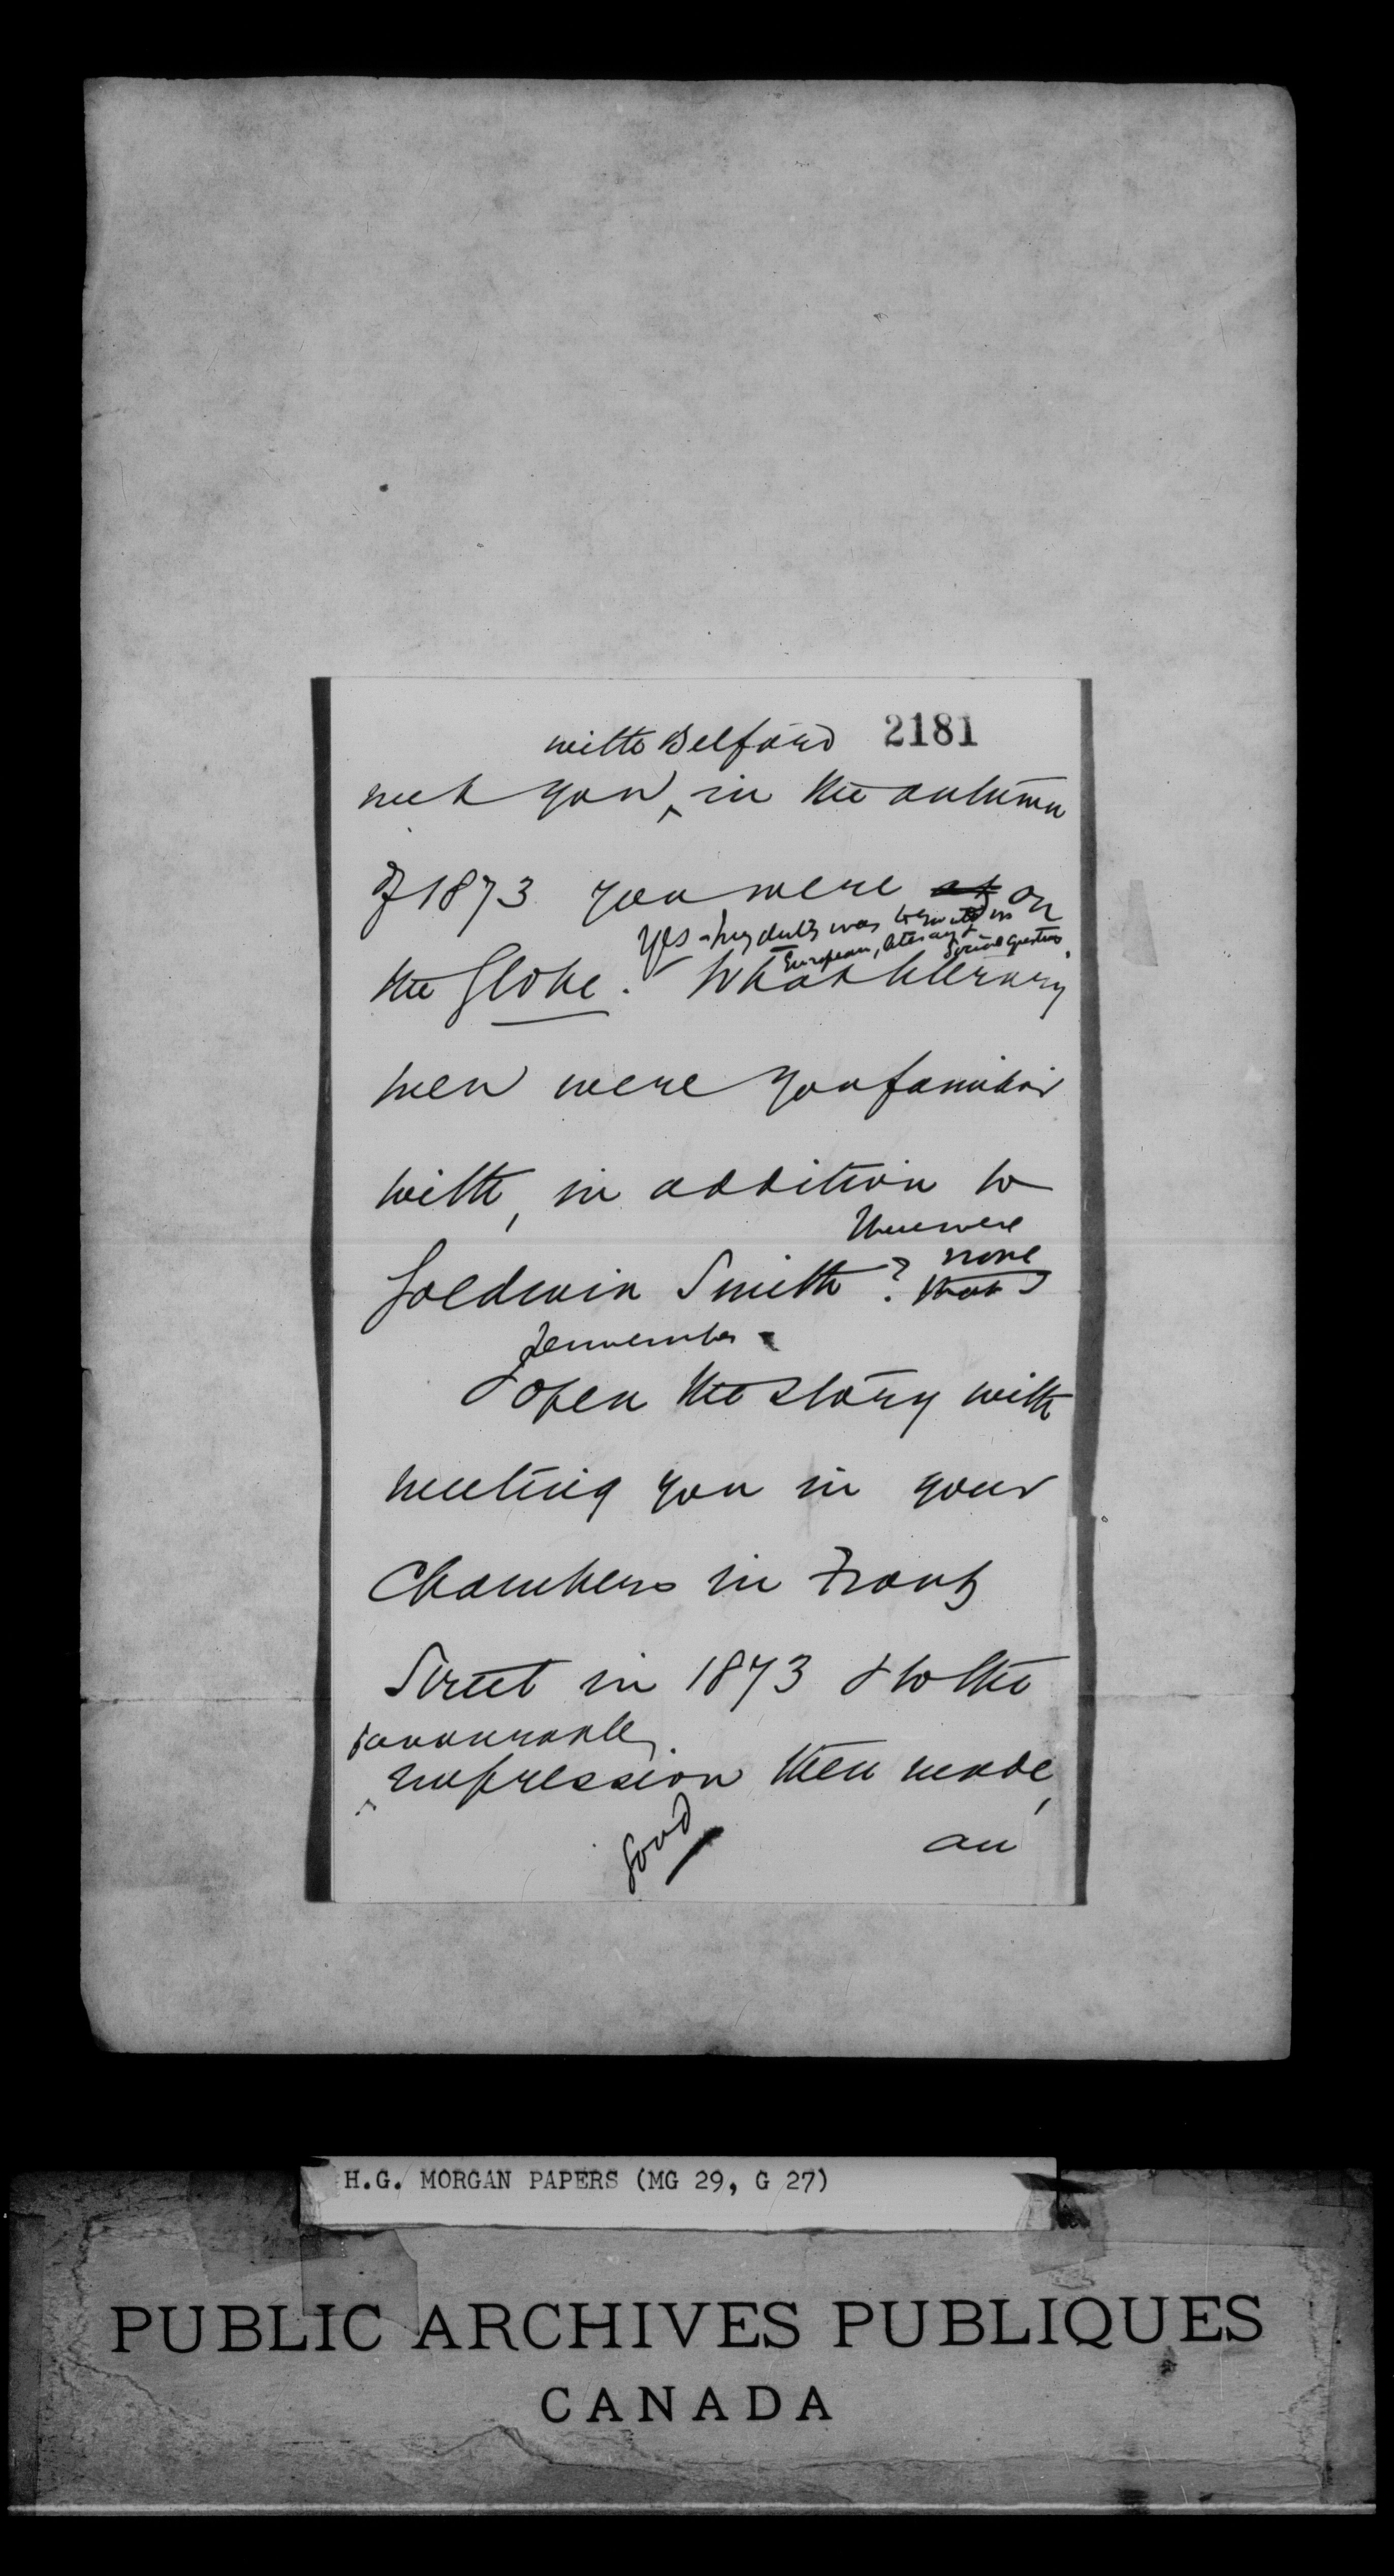 with Belford 2181
met you in the autumn
of 1873 you were at on
Yes - my duty was to write on
European, literary &
Social questions.
the Globe. What literary
men were you familiar
with, in addition to
There were
none
Goldwin Smith? that I
remember.
I open the story with
meeting you in your
Chambers in Front
Street in 1873 & to the
favourable
impression then made,
Good
an
H.G. MORGAN PAPERS (MG 29, G 27)
PUBLIC ARCHIVES PUBLIQUES
CANADA